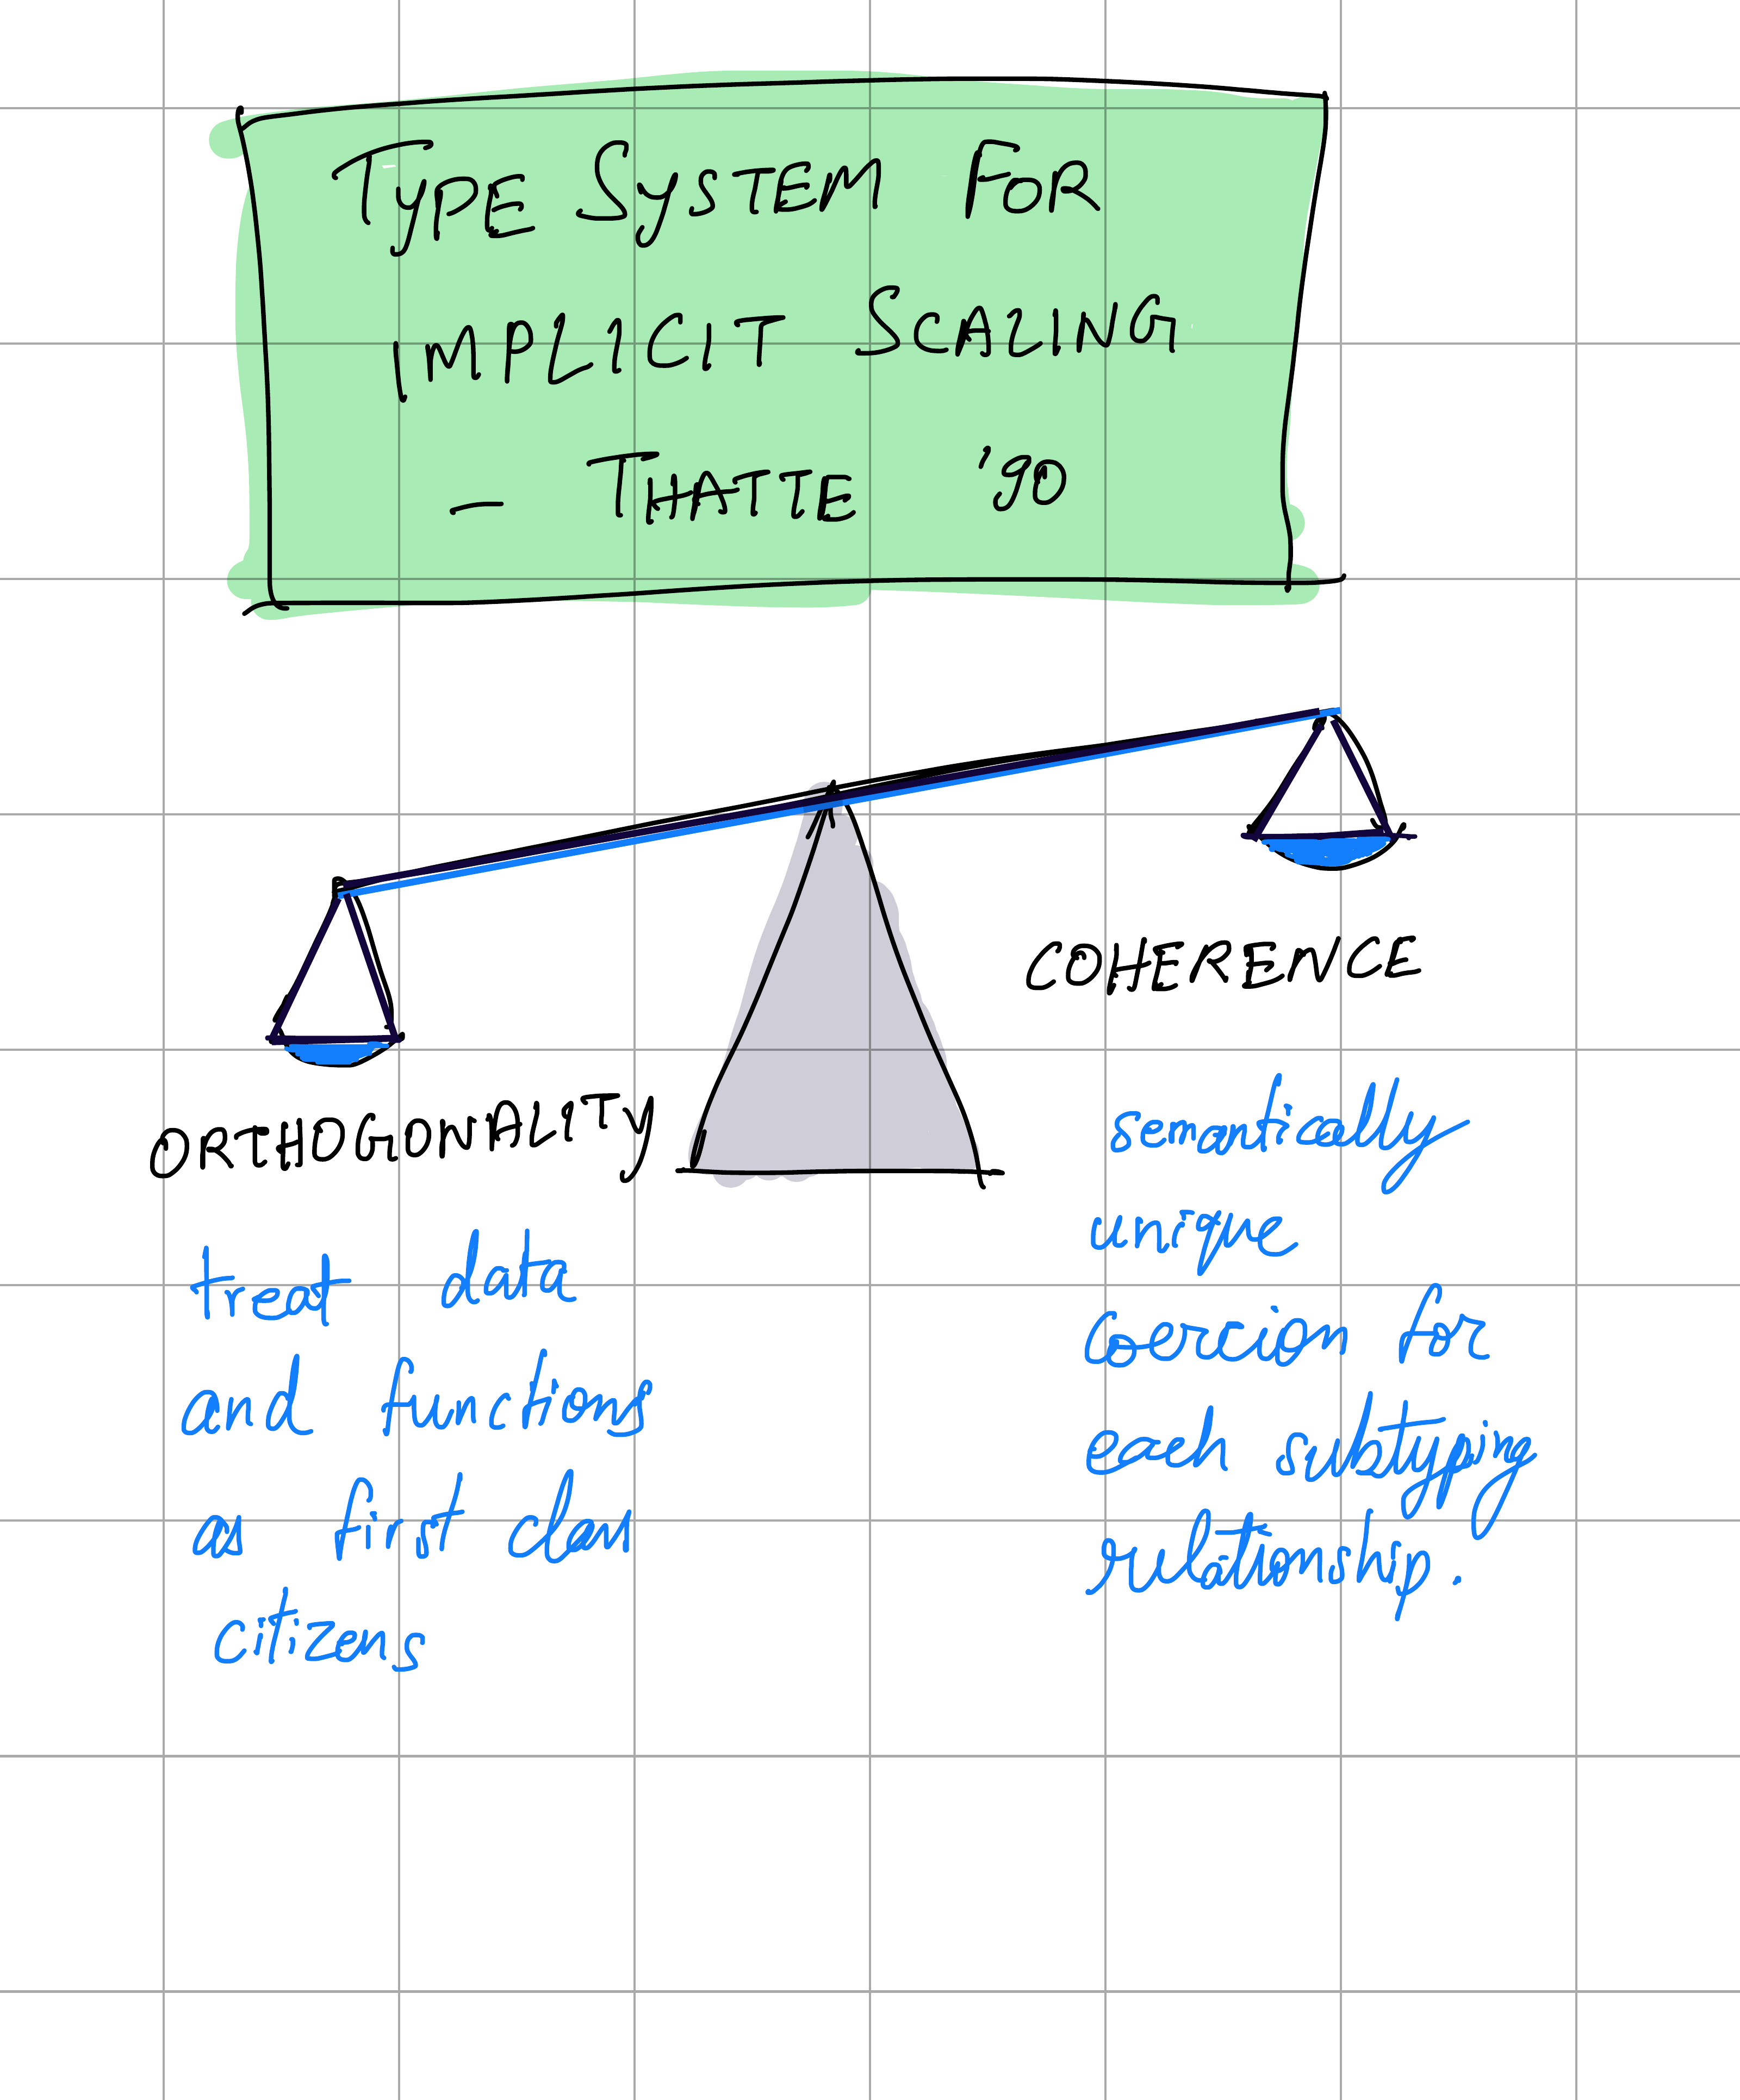 TYPE SYSTEM FOR
IMPLICIT SCALING
— THATTE '90
COHERENCE
ORTHOGONALITY
treat data
and functions
as first class
citizens
semantically
unique
coercion for
each subtyping
relationship.